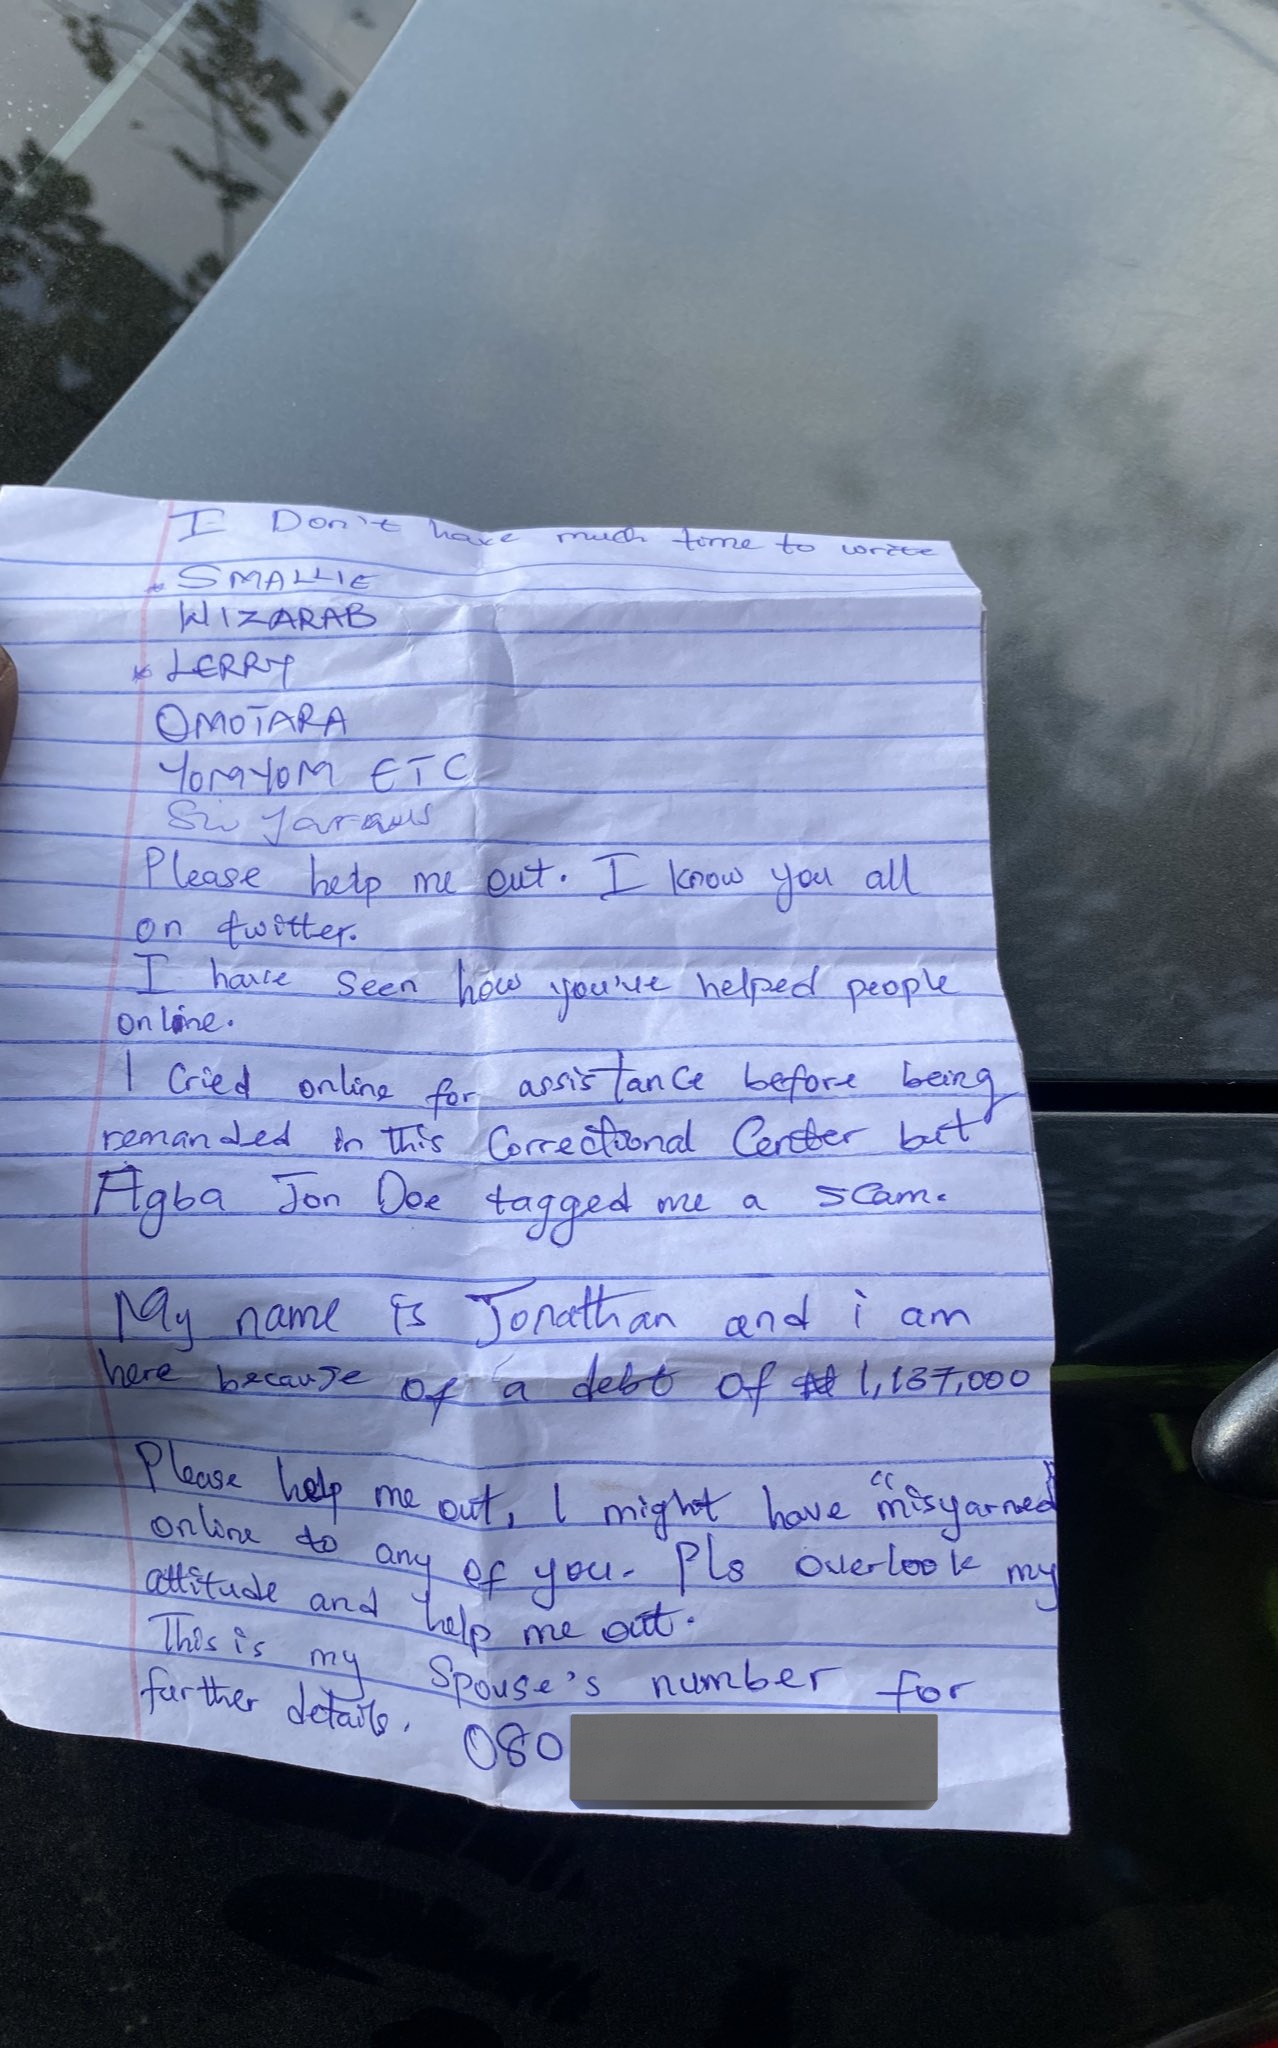 I Don't have much time to write
SMALLIE
WIZARAB
LERRY
OMOTARA
YOMYOM ETC
Please help me out. I know you all
on twitter.
I have seen how you've helped people
online.
I Cried online for assistance before being
remanded in this Correctional Center but
Agba Jon Doe tagged me a scam.
My name is Jonathan and i am
here because of a debt of ₦ 1,137,000
Please help me out, I might have "misyarned"
online to any of you. Pls overlook my
attitude and help me out.
This is my Spouse's number for
further details. 080